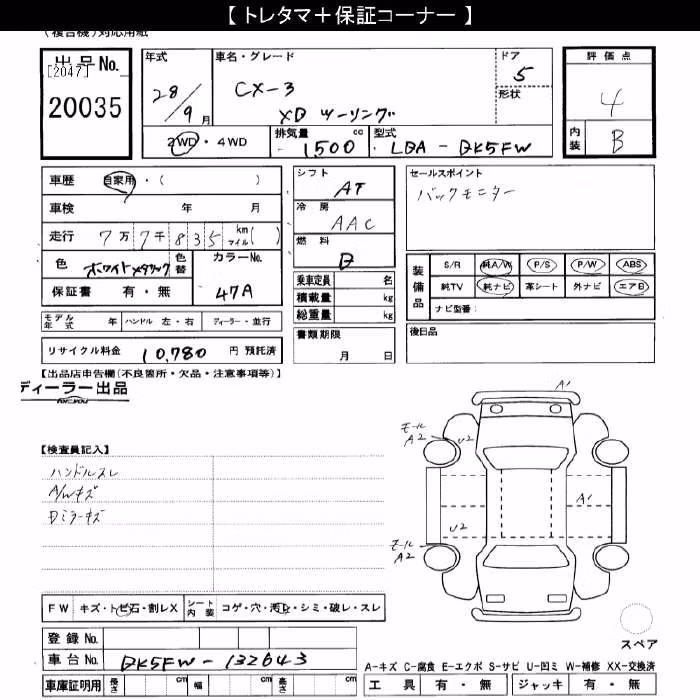 【 トレタマ＋保証コーナー 】
(複合機)対応用紙
出品No.
[2047]
20035
年式
28/9月
車名・グレード
CX-3
XD ツーリング
ドア
5
形状
評価点
4
内装
B
2WD・4WD
排気量
1500
cc
型式
LDA - DK5FW
車歴
自家用・(　　　)
車検
年　月
走行
7万7千835
km
マイル( )
色
ホワイトメタリック
色替
カラーNo.
47A
保証書
有・無
モデル年式
年
ハンドル
左・右
ディーラー・並行
リサイクル料金
10,780
円 預託済
シフト
AT
冷房
AAC
燃料
D
乗車定員
名
積載量
kg
総重量
kg
書類期限
月　日
セールスポイント
バックモニター
装備品
S/R 純A/W P/S P/W ABS
純TV 純ナビ 革シート 外ナビ エアB
ナビ型番：
後日品
【出品店申告欄(不良箇所・欠品・注意事項等)】
ディーラー出品
for you
【検査員記入】
ハンドルスレ
A/Wキズ
Dミラーキズ
A1
モール
A2
U2
A1
U2
モール
A2
スペア
FW
キズ・トビ石・割レX
シート内装
コゲ・穴・汚レ・シミ・破レ・スレ
登録No.
車台No.
DK5FW-132643
車庫証明用
長さ
cm
幅
cm
高さ
cm
A-キズ C-腐食 E-エクボ S-サビ U-凹ミ W-補修 XX-交換済
工具
有・無
ジャッキ
有・無